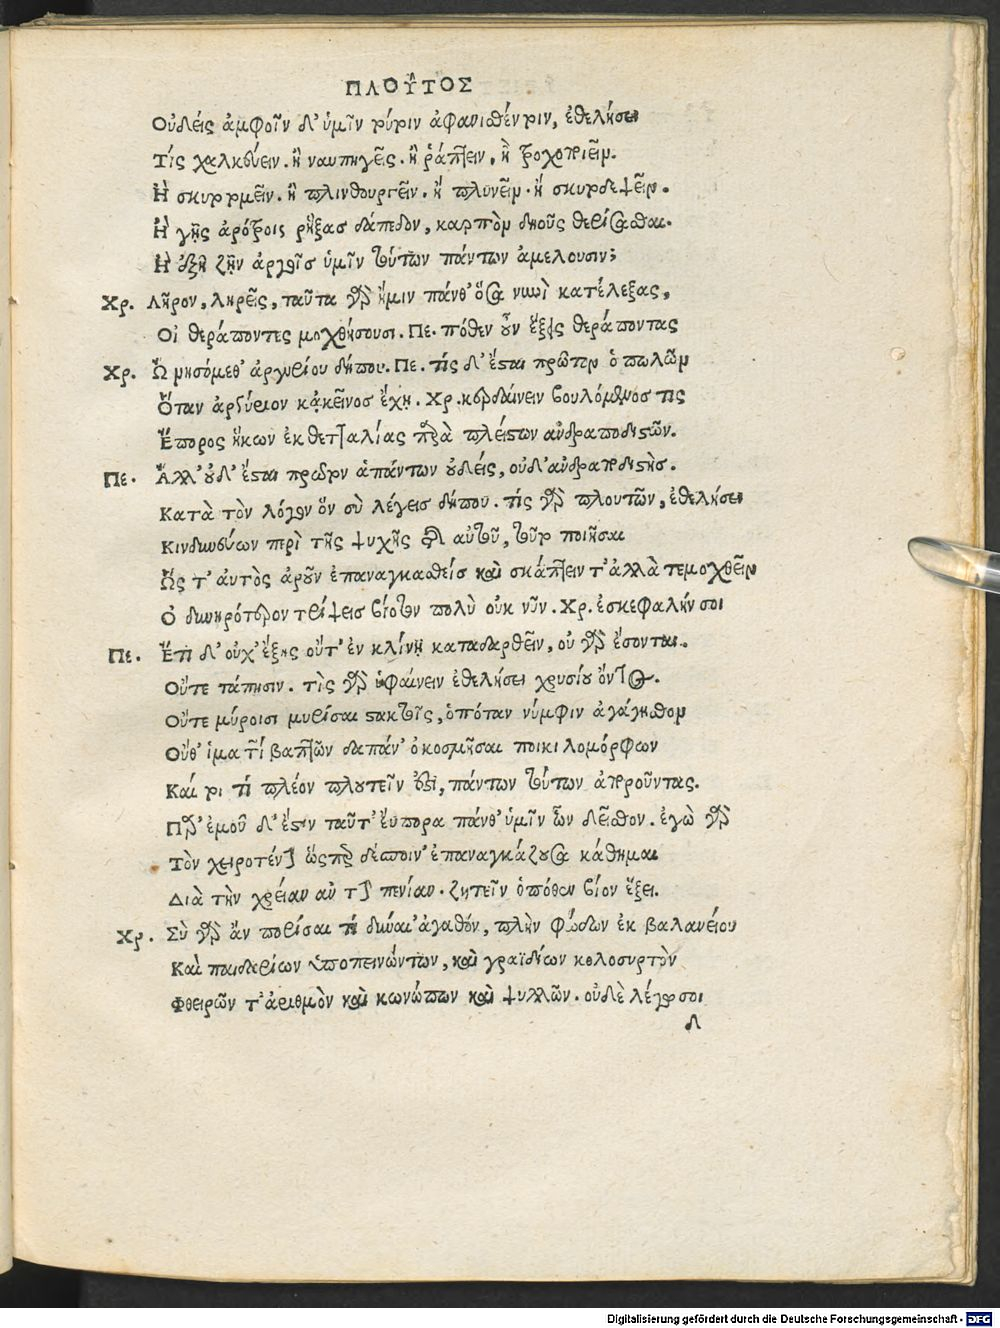 ΠΛΟῦΤΟΣ
Οὐδεὶς ἀμφοῖν δ' ὑμῖν τούτοιν ἀφανισθέντοιν, ἐθελήσει
Τίς χαλκεύειν. ἢ ναυπηγεῖν. ἢ ῥάπτειν, ἢ τροχοποιεῖν.
Ἢ σκυτοτομεῖν. ἢ πλινθουργεῖν. ἢ πλυνεῖν. ἢ σκυτοδεψεῖν.
Ἢ γῆς ἀρότροις ῥήξας δάπεδον, καρπὸν δηοῦς θερίσασθαι.
Ἢ ἐξῆ ζῆν ἀργοῖς ὑμῖν τούτων πάντων ἀμελουσιν;
Χρ. Λῆρον, ληρεῖς, ταῦτα γὰρ ἥμιν πάνθ' ὅσα νυνὶ κατέλεξας,
Οἱ θεράποντες μοχθήσουσι. Πε. πόθεν οὖν ἕξεις θεράποντας
Χρ. Ὠνησόμεθ' ἀργυρίου δήπου. Πε. τίς δ' ἔσται πρῶτον ὁ πωλῶν
Ὅταν ἀργύριον κᾀκεῖνος ἔχῃ. Χρ. κερδαίνειν βουλόμενός τις
Ἔμπορος ἥκων ἐκ θετταλίας παρὰ πλείστων ἀνδραποδιστῶν.
Πε. Ἀλλ' οὐδ' ἔσται πρῶτον ἁπάντων οὐδείς, οὐδ' ἀνδραποδιστής.
Κατὰ τὸν λόγον ὃν σὺ λέγεις δήπου. τίς γὰρ πλουτῶν, ἐθελήσει
Κινδυνεύων περὶ τῆς ψυχῆς τῆς αὑτοῦ, τοῦτο ποιῆσαι
Ὥς τ' αὐτὸς ἀροῦν ἐπαναγκασθείς καὶ σκάπτειν τ' ἀλλὰ τε μοχθεῖν
Ὀδυνηρότερον τρίψεις βίοτον πολὺ οὐκ νῦν. Χρ. ἐσκεφαλήν σοι
Πε. Ἔτι δ' οὐχ' ἕξεις οὔτ' ἐν κλίνῃ καταδαρθεῖν, οὐ γὰρ ἔσονται.
Οὔτε τάπησιν. τὶς γὰρ ὑφαίνειν ἐθελήσει χρυσίου ὄντος.
Οὔτε μύροισι μυρίσαι στακτοῖς, ὁπόταν νύμφιν ἀγάγησθον
Οὔθ' ἱματίων βαπτῶν δαπάν' ὁ κοσμῆσαι ποικιλομόρφων
Καί τοι τί πλέον πλουτεῖν ἐστι, πάντων τούτων ἀποροῦντας.
Παρ' ἐμοῦ δ' ἔστιν ταῦτ' εὔπορα πάνθ' ὑμῖν ὧν δεῖσθον. ἐγὼ γὰρ
Τὸν χειροτέχνην ὥσπερ δέσποιν' ἐπαναγκάζουσα κάθημαι
Διὰ τὴν χρείαν αὐ τὴν πενίαν. ζητεῖν ὁπόθεν βίον ἕξει.
Χρ. Σὺ γὰρ ἂν πορίσαι τί δύναι' ἀγαθόν, πλὴν φώδων ἐκ βαλανείου
Καὶ παιδαρίων ὑποπεινώντων, καὶ γραϊδίων κολοσυρτὸν
Φθειρῶν τ' ἀριθμὸν καὶ κωνώπων καὶ ψυλλῶν. οὐδὲ λέγω σοι
Δ
Digitalisierung gefördert durch die Deutsche Forschungsgemeinschaft - DFG